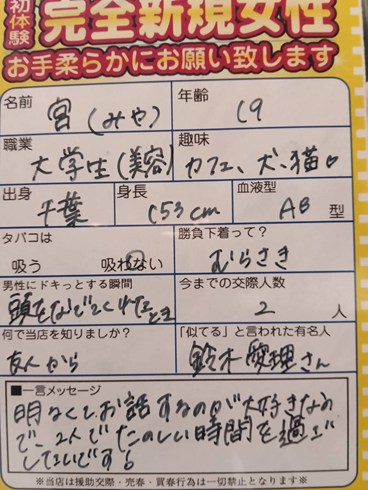 初体験 完全新規女性
お手柔らかにお願い致します
名前 宮(みや) 年齢 19
職業 大学生(美容) 趣味 カフェ、犬、猫
出身 千葉 身長 153cm 血液型 AB 型
タバコは 吸う 吸わない 勝負下着って? むらさき
男性にドキっとする瞬間 頭をなでてくれたとき 今までの交際人数 2 人
何で当店を知りましたか? 友人から 「似てる」と言われた有名人 鈴木愛理さん
■一言メッセージ
明るくて、お話するのが大好きなの
で、2人でたのしい時間を過ごし
したいです!
※当店は援助交際・売春・買春行為は一切禁止となります※